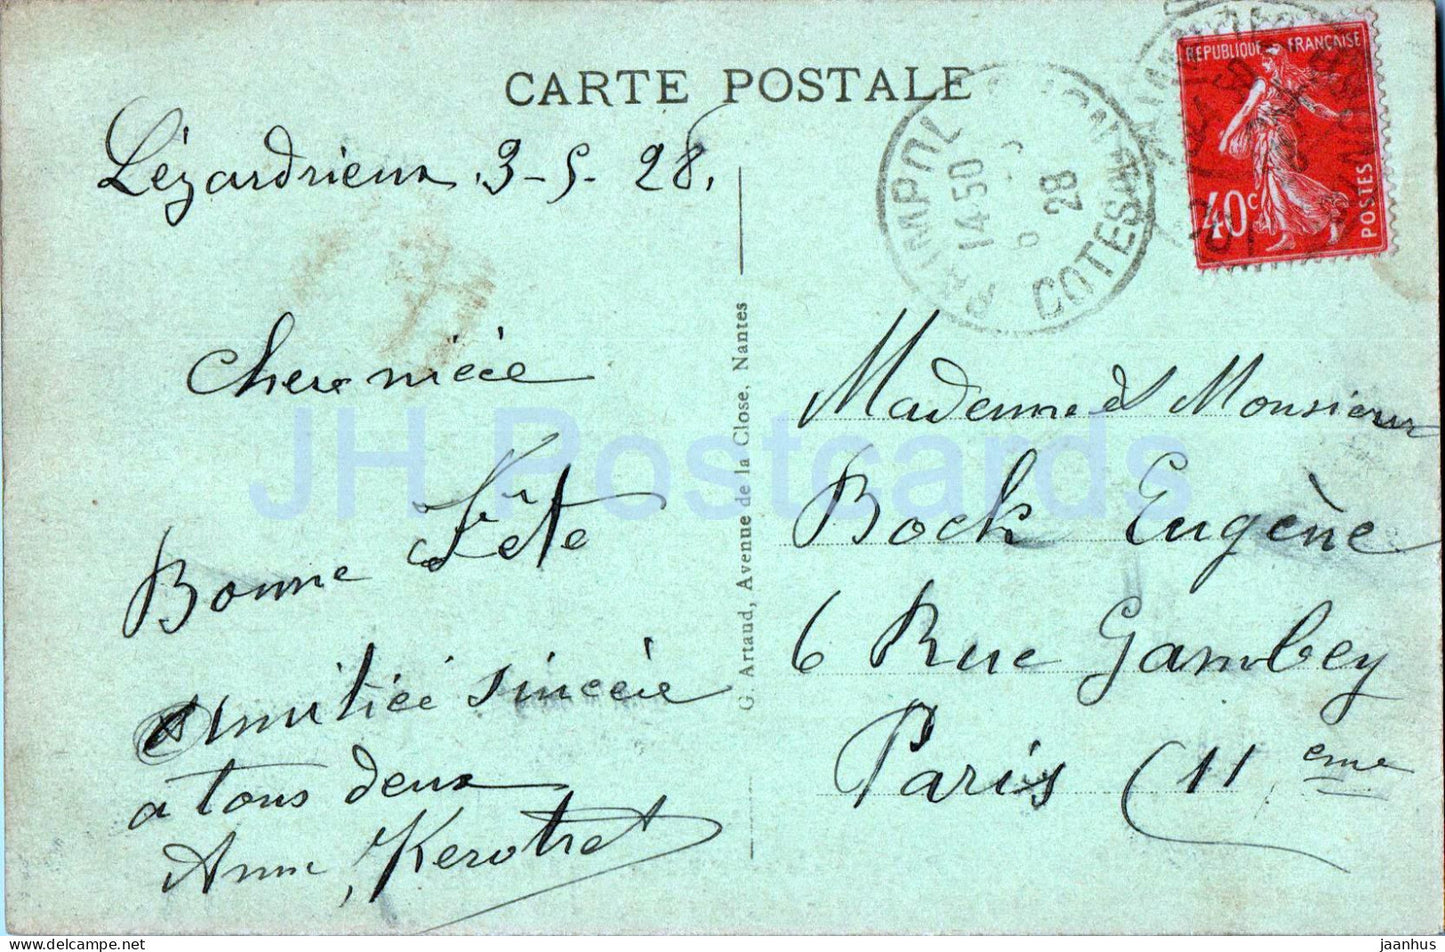 CARTE POSTALE
Lézardrieux. 3-5-28.
chere nièce
Bonne Fête
Amitiée sincère
a tous deux
Anna Kerotret
G. Artaud, Avenue de la Close, Nantes
REPUBLIQUE FRANÇAISE
40c
POSTES
PAIMPOL
14-50
28
COTES DU NORD
Madame et Monsieur
Bock Eugène
6 Rue Gambey
Paris (11 eme
JH Postcards
jaanhus